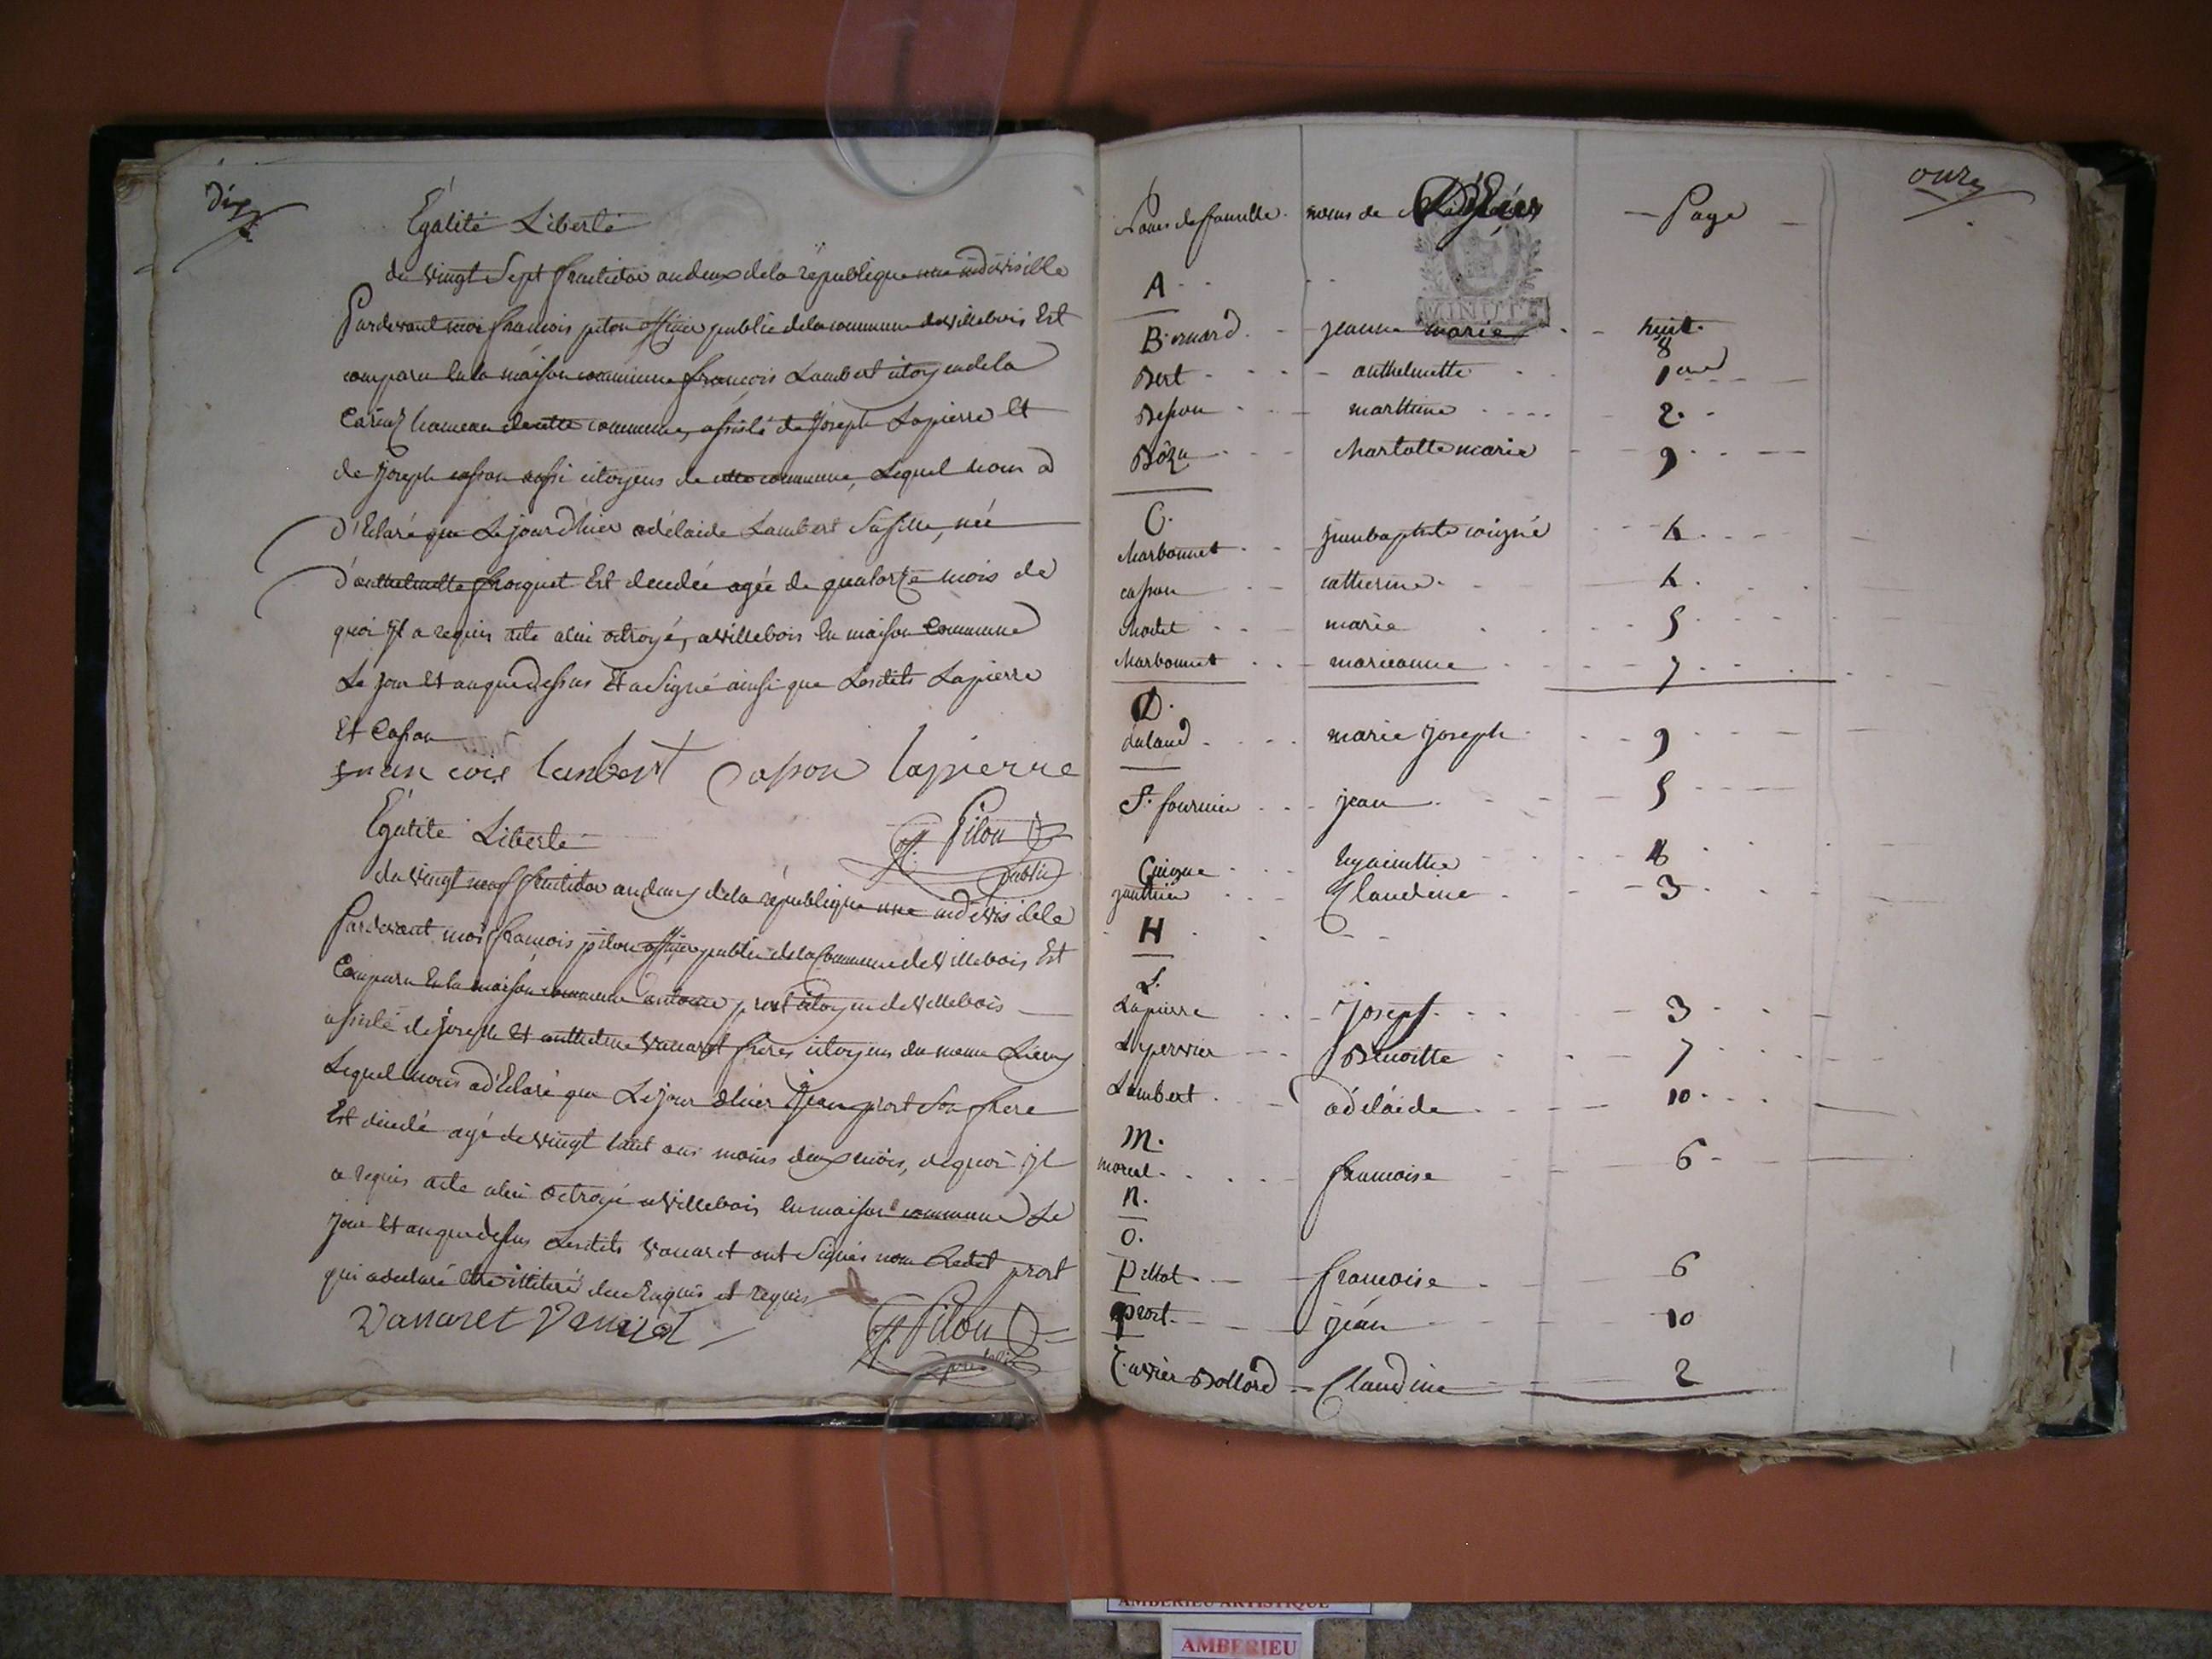 dix
Égalité Liberté
du vingt Sept fructidor an deux de la république une indivisible
Pardevant moi françois pilon officier public de la commune de villebois Est
comparu En la maison commune françois Lambert citoyen de la
hameau de cette commune, assisté de Joseph Lapierre Et
de Joseph casson aussi citoyens de cette commune, Lequel nous a
d'Eclaré que Le jour d'hier adélaide Lambert Sa fille, née
d'anthelmette froquet Est décedée agée de quatorze mois de
quoi Il a requis acte a lui octroyé, a villebois En maison Commune
Le jour Et an que dessus Et a Signé ainsi que Lesdits Lapierre
Et Casson
francois lambert Casson lapierre
Pilon
public
Égalité Liberté
du vingt neuf fructidor an deux de la république une indivisible
Pardevant moi françois pilon officier public de la Commune de villebois Est
Comparu En la maison commune antoine prost citoyen de villebois
assisté de joseph Et anthelme vanaret freres citoyens du meme Lieu
Lequel nous a d'Eclaré que Le jour d'hier Jean prost Son frere
Est décedé agé de vingt huit ans moins deux mois, de quoi il
a requis acte a lui octroyé a villebois En maison commune Le
jour Et an que dessus Lesdits vanaret ont Signés non Ledit prost
qui a declaré Etre illiteré de ce Enquis et requis
Vanaret Vanaret
Pilon
public
onze
Noms de famille noms de Page
MINUTE
A
Bernard jeanne marie huit
8
Bert anthelmette 1ere
Besson marthine 2
Bôza Charlotte marie 9
C.
Charbonnet jean baptiste 4
casson catherine 4
Chodet marie 5
Charbonnet marieanne 7
D.
duland marie Joseph 9
F. fournier jean 5
Guigue hyacinthe 8
gauthier Claudine 3
H
L.
Lapierre joseph 3
Lepervier Benoitte 7
Lambert adélaide 10
M.
morel francoise 6
N.
O.
Pittot francoise 6
prost jéan 10
T. avier Bollard Claudine 2
AMBERIEU ARTISTIQUE
AMBERIEU